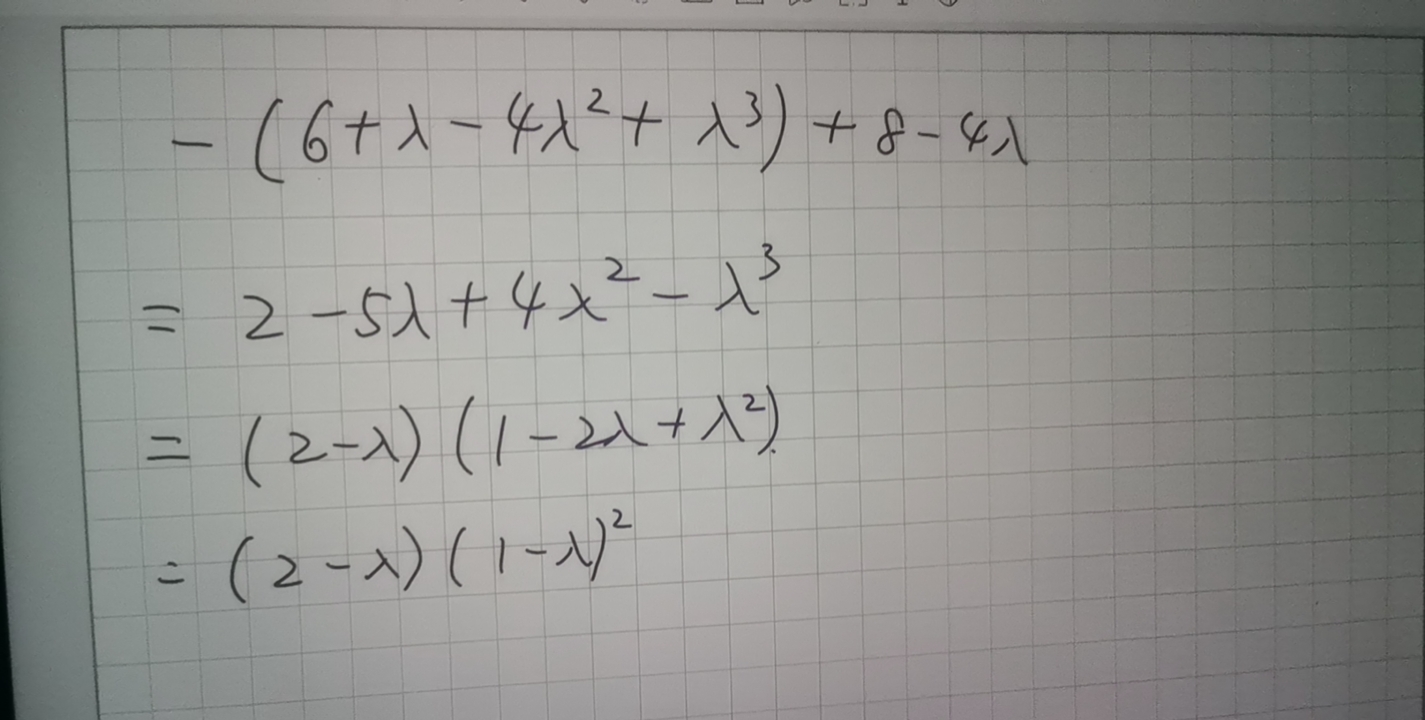 - (6 + λ - 4λ² + λ³) + 8 - 4λ
= 2 - 5λ + 4λ² - λ³
= (2 - λ) (1 - 2λ + λ²)
= (2 - λ) (1 - λ)²